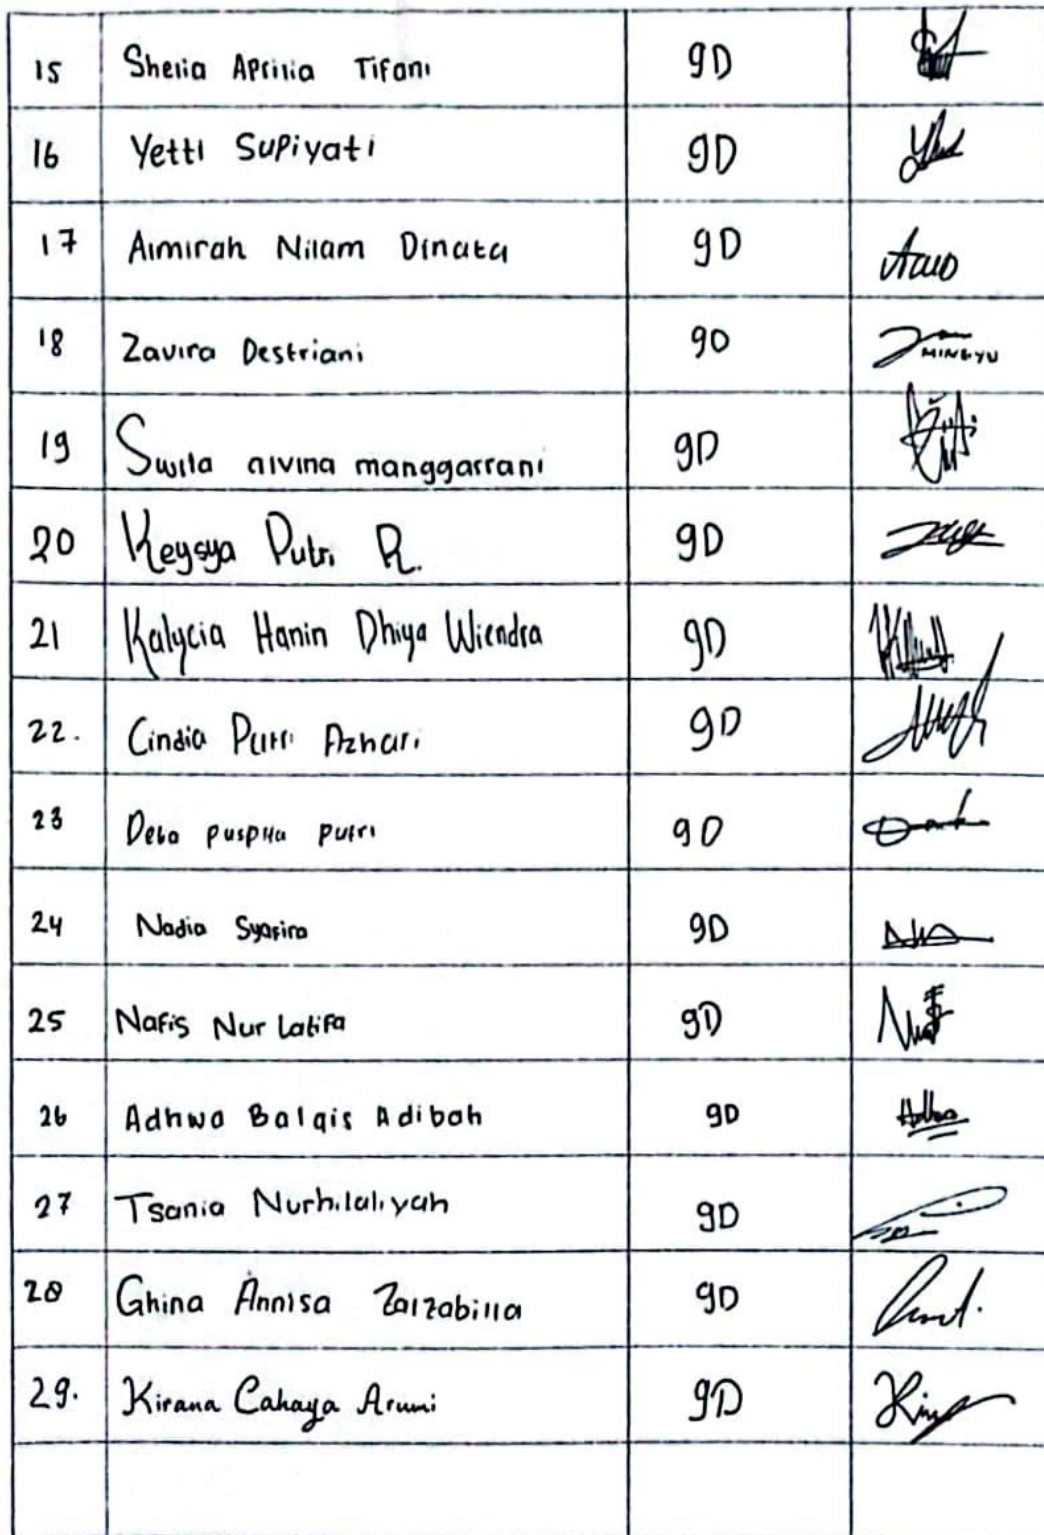 15 Shelia Aprilia Tifani 9D
16 Yetti Supiyati 9D
17 Almirah Nilam Dinata 9D
18 Zavira Destriani 9D MINGYU
19 Swila alvina manggarrani 9D
20 Keysya Putri R. 9D
21 Kalycia Hanin Dhiya Wiendra 9D
22. Cindia Putri Azhari 9D
23 puspita putri 9D
24 Nadia Syafira 9D
25 Nafis Nur Latifa 9D
26 Adhwa Balqis Adibah 9D
27 Tsania Nurhilaliyah 9D
28 Ghina Annisa Zalzabilla 9D
29. Kirana Cahaya Arumi 9D